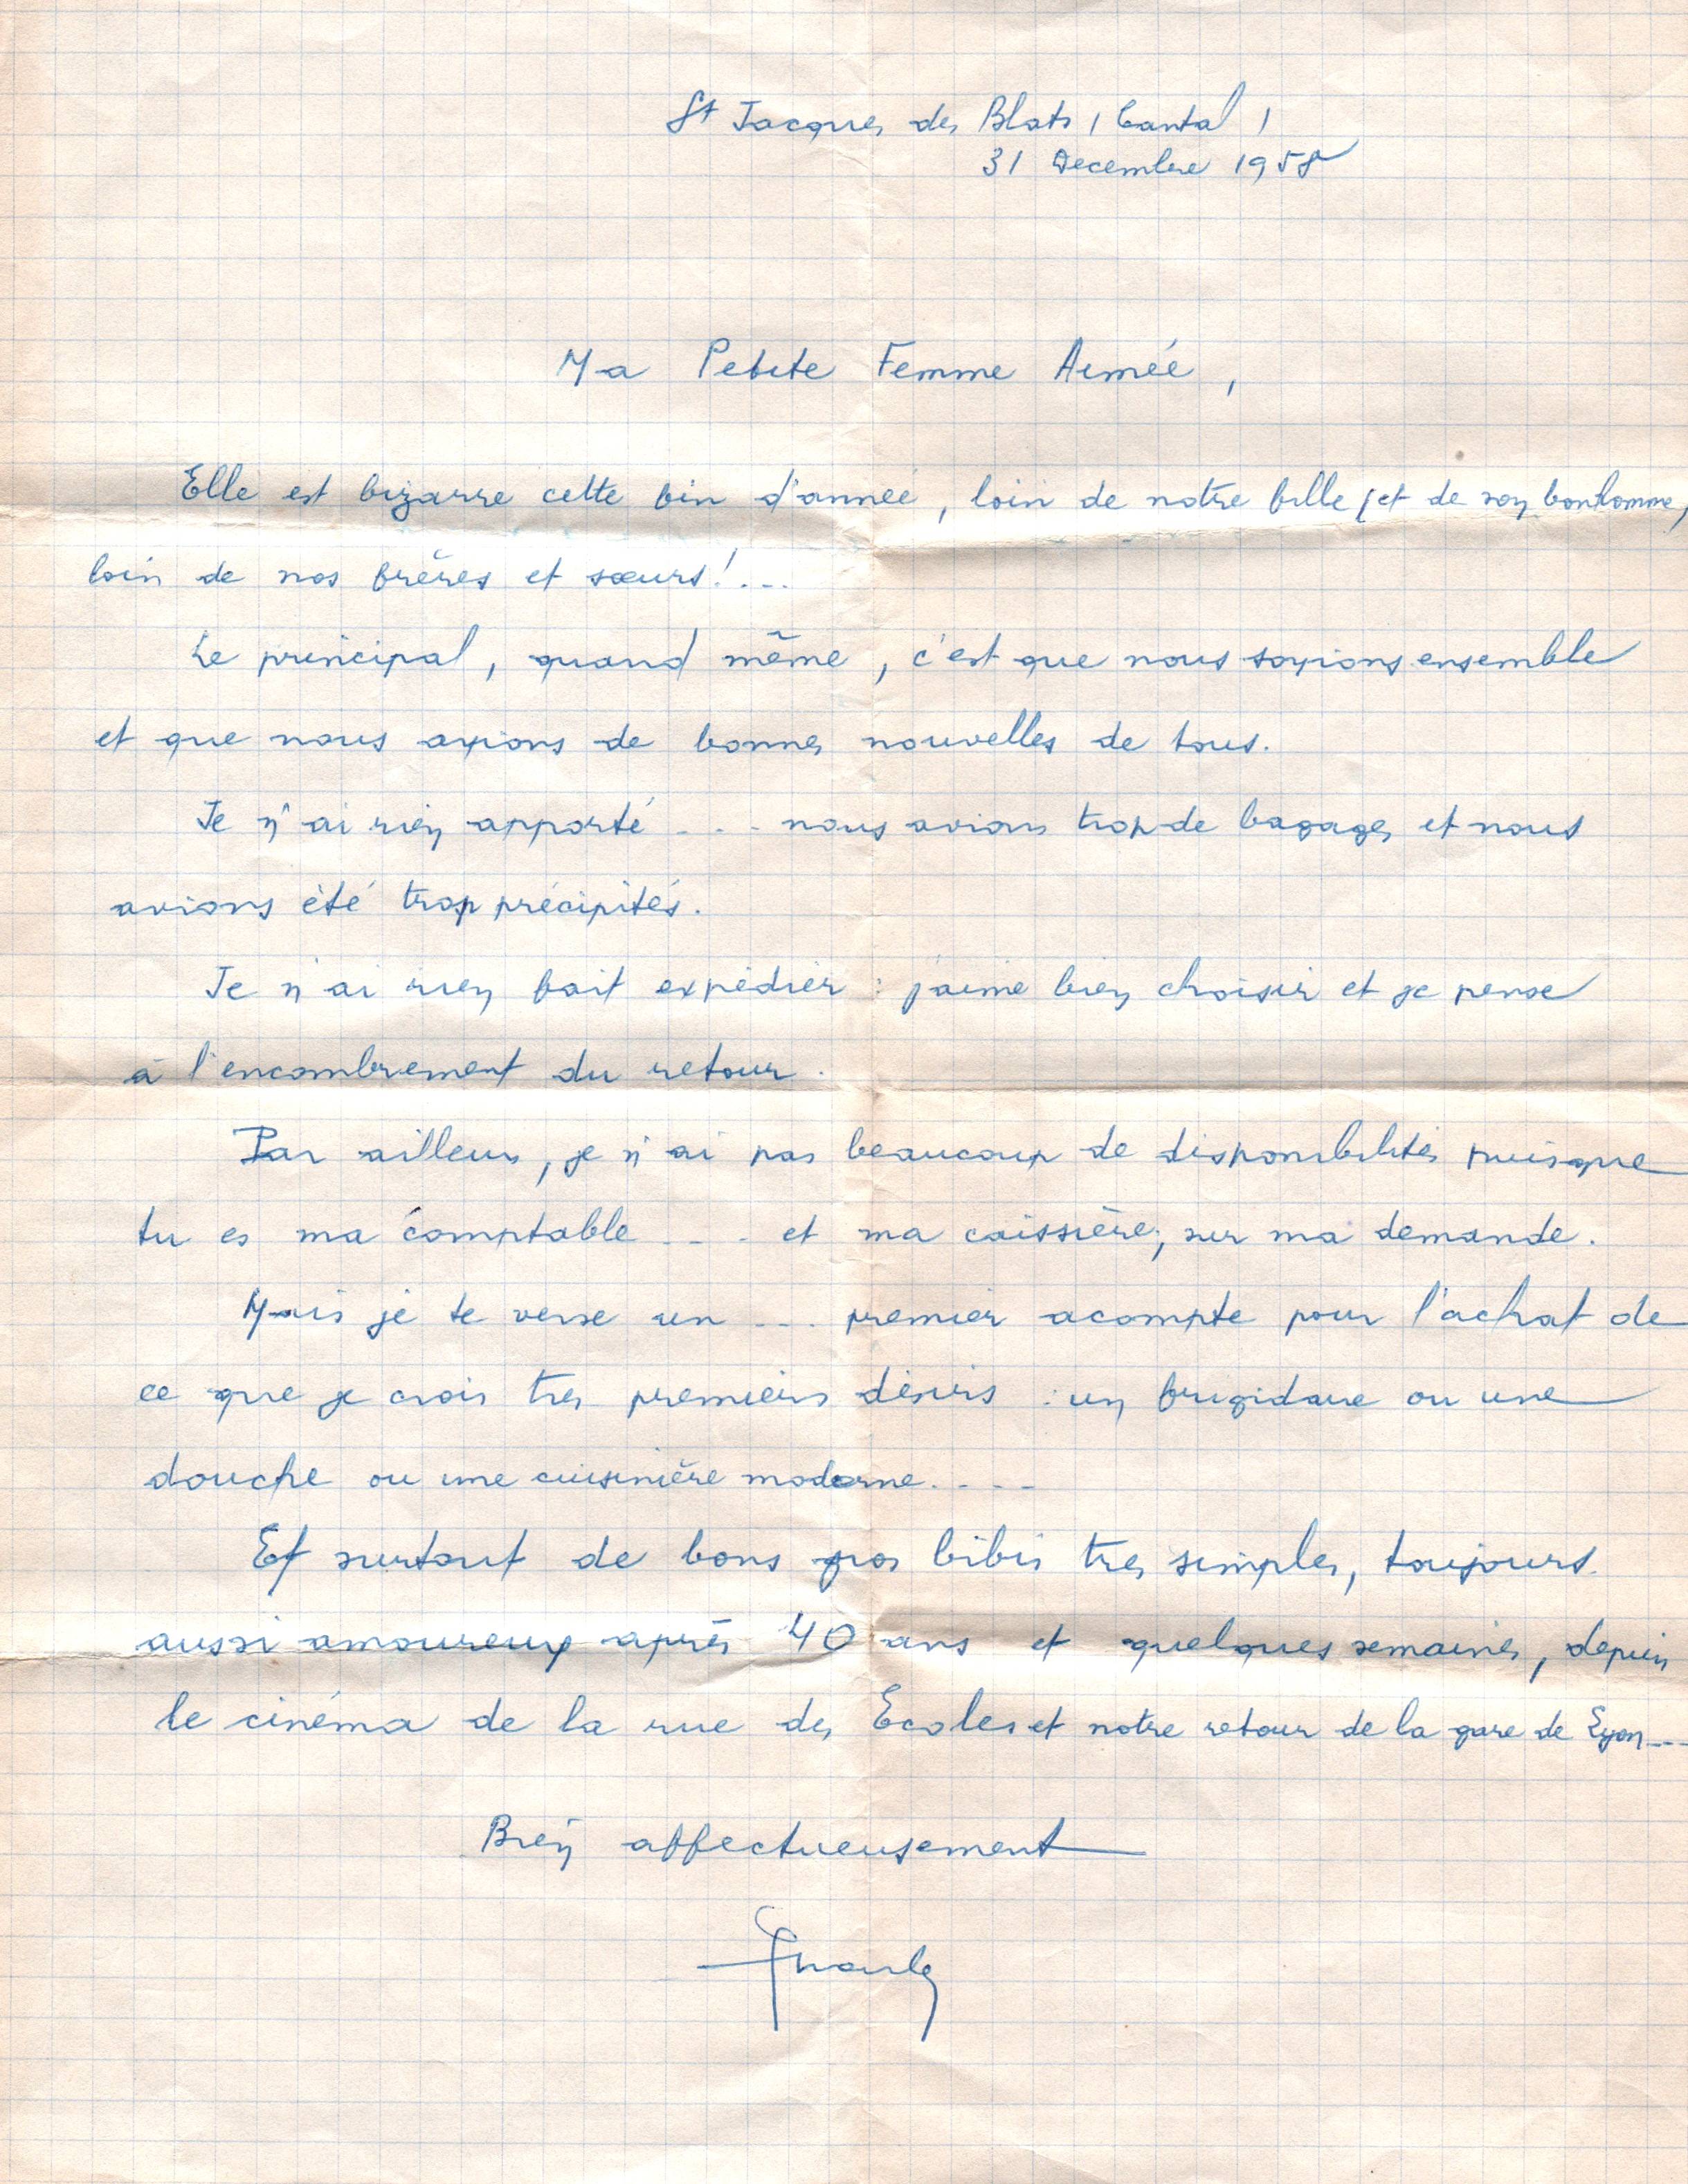 St Jacques des Blats (Cantal)
31 Decembre 1958
Ma Petite Femme Aimée,
Elle est bizarre cette fin d'année, loin de notre fille (et de son bonhomme,
loin de nos frères et sœurs!...
Le principal, quand même, c'est que nous soyions ensemble
et que nous ayions de bonnes nouvelles de tous.
Je n'ai rien apporté ... nous avions trop de bagages et nous
avions été trop précipités.
Je n'ai rien fait expédier : j'aime bien choisir et je pense
à l'encombrement du retour.
Par ailleurs, je n'ai pas beaucoup de disponibilités puisque
tu es ma comptable ... et ma caissière, sur ma demande.
Mais je te verse un ... premier acompte pour l'achat de
ce que je crois tes premiers désirs : un frigidaire ou une
douche ou une cuisinière moderne....
Et surtout de bons gros bibis très simples, toujours
aussi amoureux après 40 ans et quelques semaines, depuis
le cinéma de la rue des Ecoles et notre retour de la gare de Lyon...
Bien affectueusement